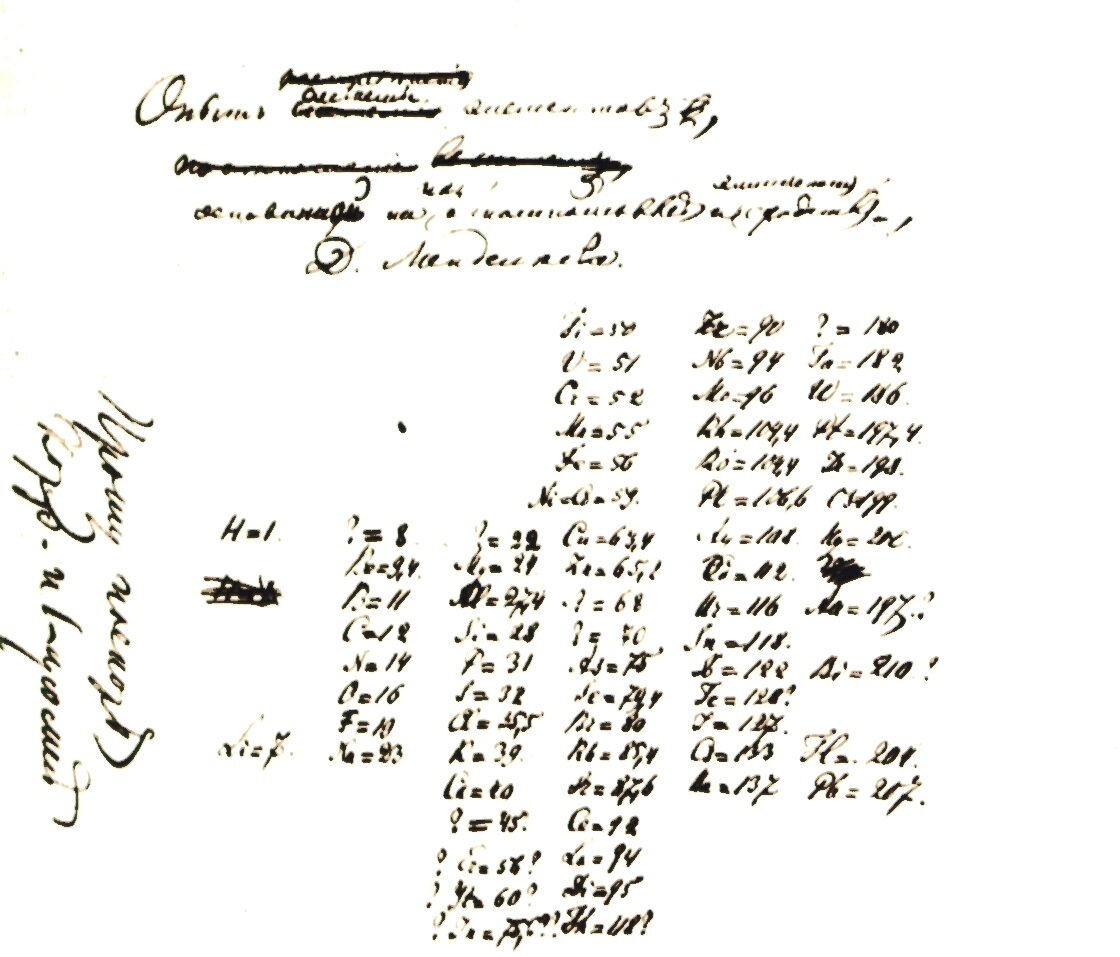 Опытъ системы элементовъ,
основанной на ихъ атомномъ вѣсѣ и химическомъ сходствѣ,
Д. Менделѣева.
Ti=50 Zr=90 ?=180
V=51 Nb=94 Ta=182
Cr=52 Mo=96 W=186
Mn=55 Rh=104,4 Pt=197,4
Fe=56 Ru=104,4 Ir=198
Ni=Co=59 Pl=106,6 Os=199
H=1 ?=8 ?=22 Cu=63,4 Ag=108 Hg=200
Be=9,4 Mg=24 Zn=65,2 Cd=112
B=11 Al=27,4 ?=68 Ur=116 Au=197?
C=12 Si=28 ?=70 Sn=118
N=14 P=31 As=75 Sb=122 Bi=210?
O=16 S=32 Se=79,4 Te=128?
F=19 Cl=35,5 Br=80 J=127
Li=7 Na=23 K=39 Rb=85,4 Cs=133 Tl=204
Ca=40 Sr=87,6 Ba=137 Pb=207
?=45 Ce=92
?Er=56? La=94
?Yt=60? Di=95
?In=75,6?? Th=118?
Прошу